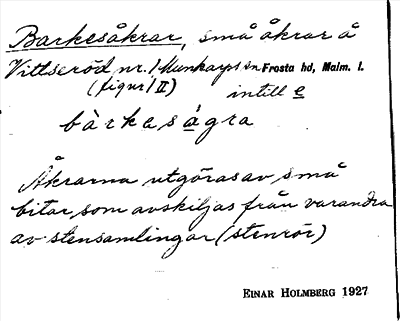 Barkesåkrar, små åkrar å
Vittseröd nr. 1 Munkarps sn Frosta hd, Malm. l.
(figur 1 II) intill e
bàrkesàgra
Åkrarna utgöras av små
bitar, som avskiljas från varandra
av stensamlingar (stenrör)
EINAR HOLMBERG 1927